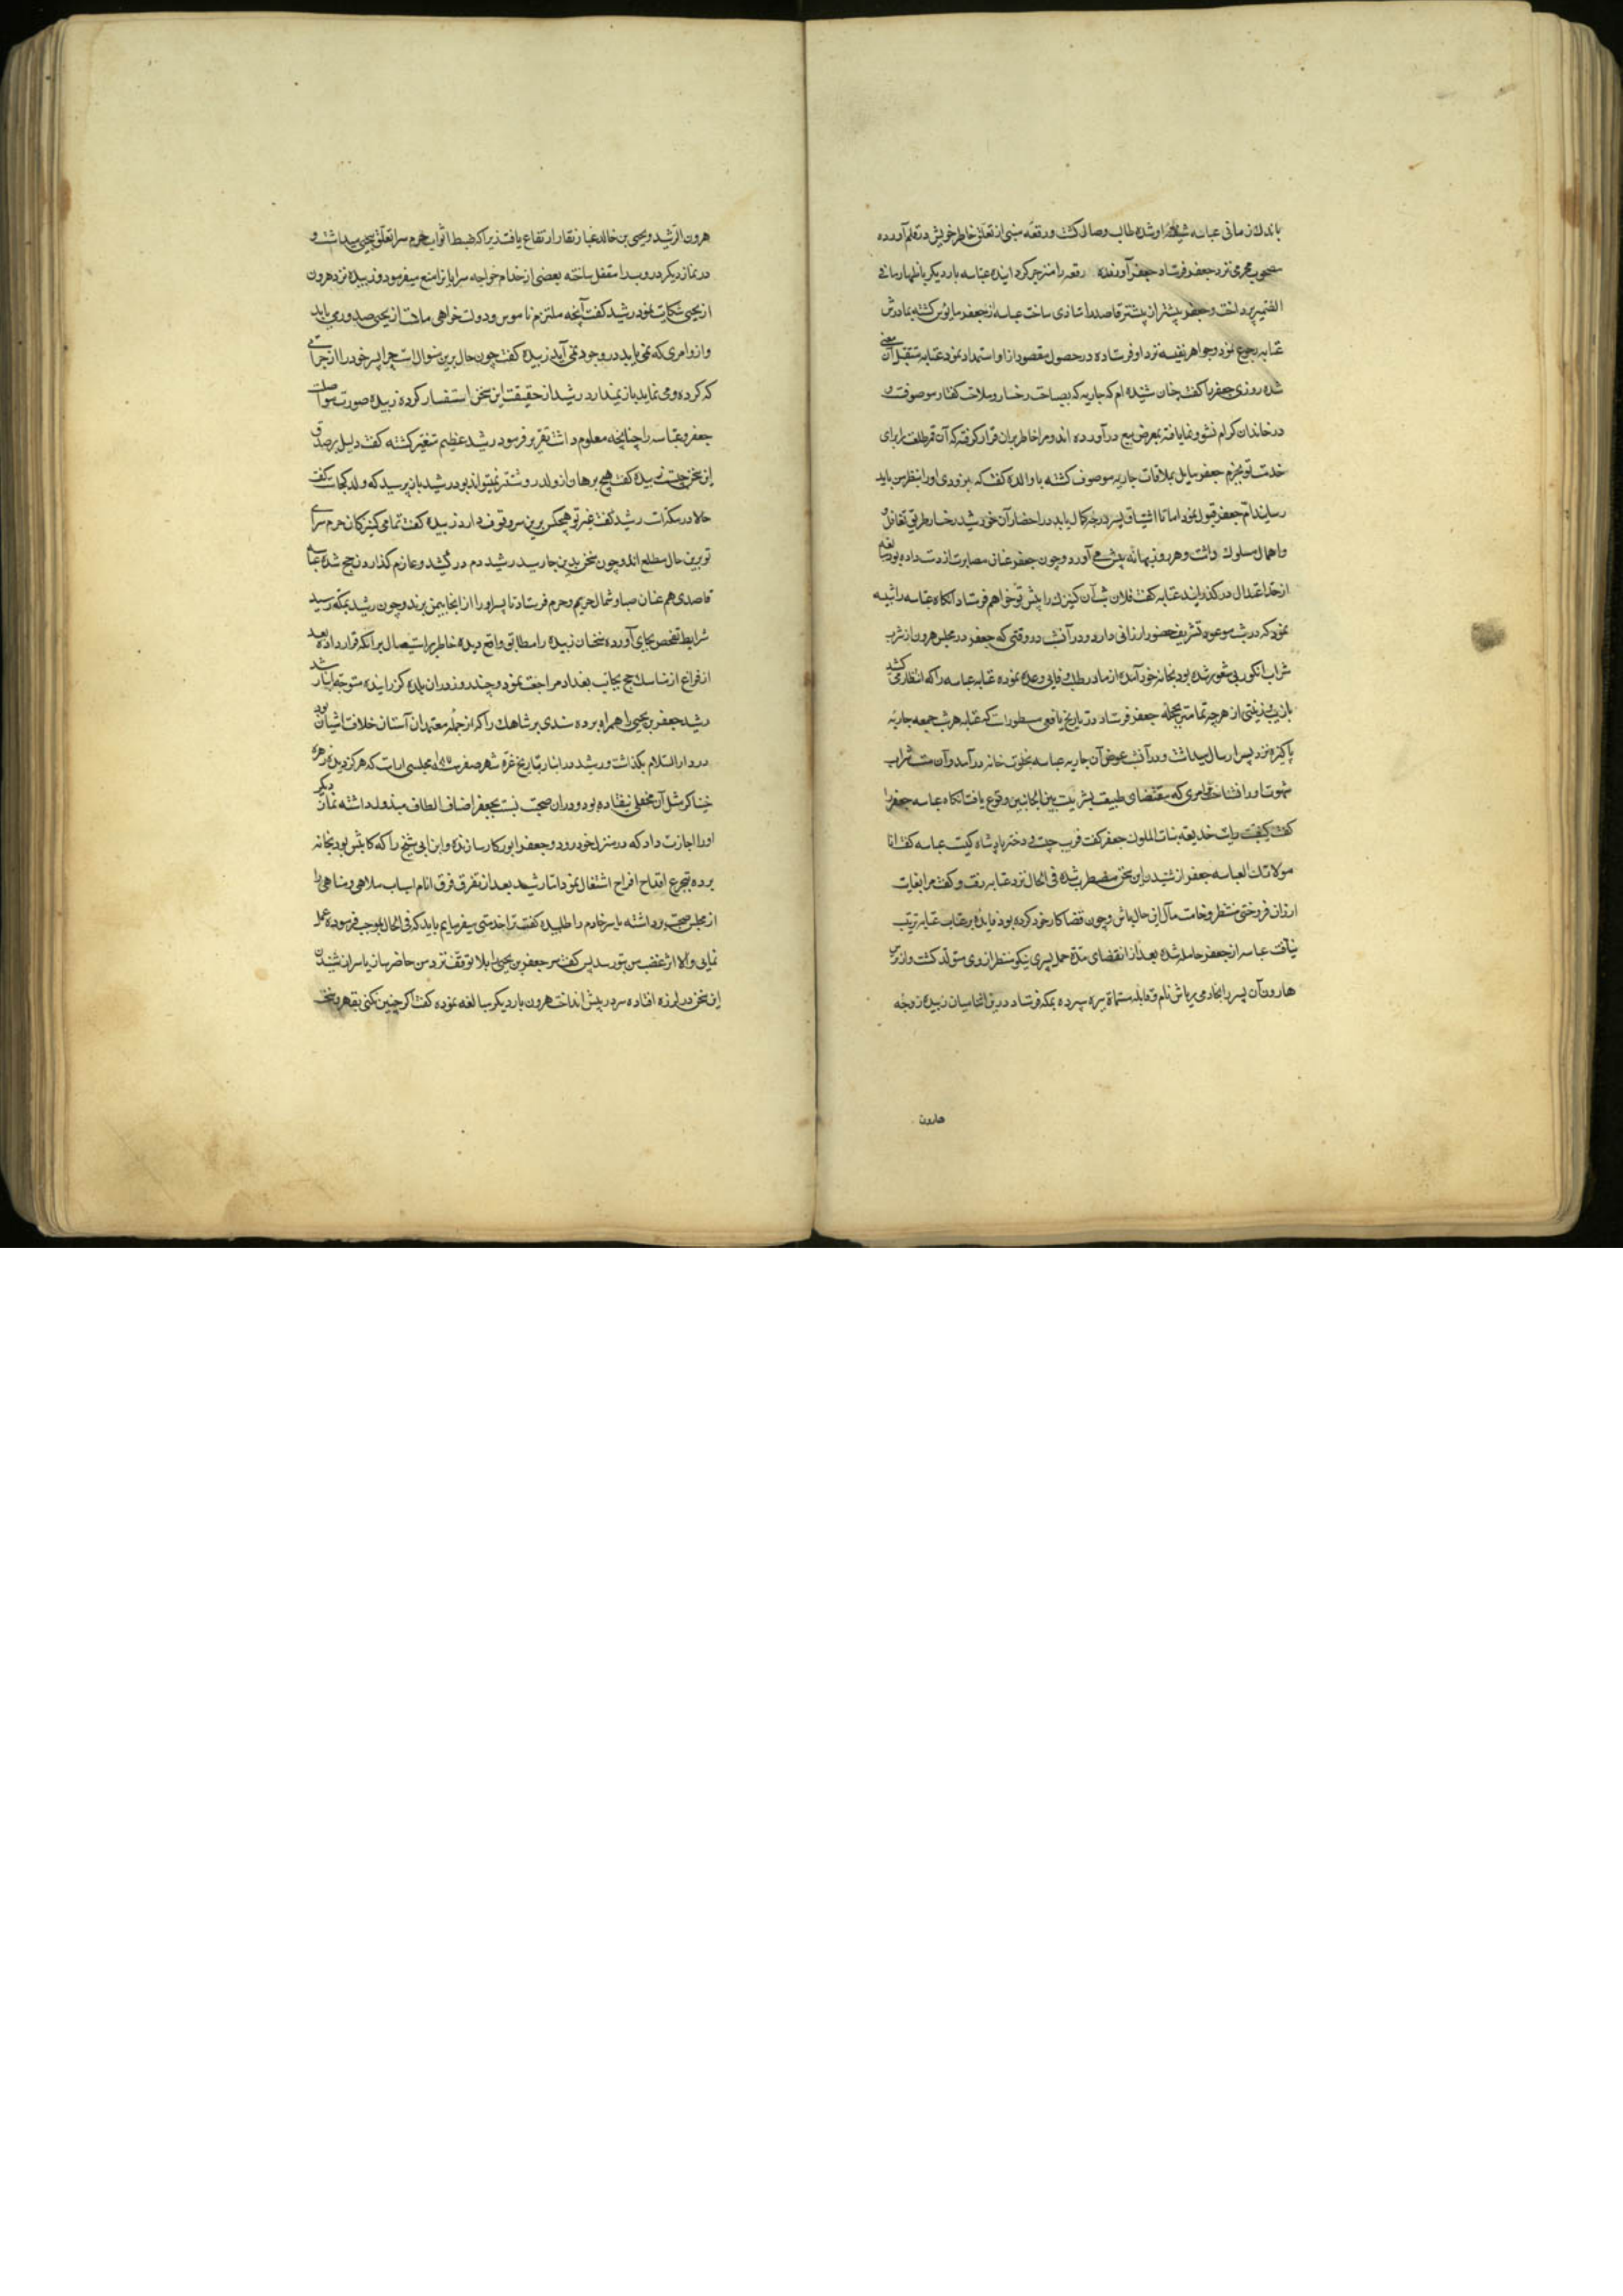 باندک زمانی عباسه شیفته او شده طالب وصال کشت و رقعه مبنی از تعلق خاطر خویش در قلم آورده
مصحوب محرمی نزد جعفر فرستاد جعفر آورنده رقعه را منزجر کردانیده عباسه بار دیکر باظهار ما فی
الضمیر پرداخت و جعفر بیشتر از پیشتر قاصد را متاذی ساخت عباسه از جعفر مایوس کشته بمادرش
عتابه رجوع نمود و جواهر نفیسه نزد او فرستاده در حصول مقصود از او استمداد نمود عتابه متقبل آن معنی
شده روزی جعفر را کفت چنان شنیده ام که جاریه که بصباحت رخسار و ملاحت کفتار موصوفست و
در خاندان کرام نشو و نما یافته بمعرض بیع در آورده اند و مرا خاطر بران قرار کرفته که آن قمر طلعت را برای
خدمت تو بخرم جعفر مایل بملاقات جاریه موصوف کشته با والده کفت که بزودی او را بنظر من باید
رسانید ام جعفر قبول نمود اما تا اشتیاق پسر درجه کمال یابد در احضار آن خورشید رخسار طریق تغافل
و اهمال مسلوک داشت و هر روز بهانه پیش می آورد و چون جعفر عنان مصابرت از دست داده بود مبالغه
از حد اعتدال در کذرانید عتابه کفت فلان شب آن کنیزک را پیش تو خواهم فرستاد آنکاه عباسه را تنبیه
نمود که در شب موعود تشریف حضور ارزانی دارد و در آن شب در وقتی که جعفر در مجلس هرون از شرب
شراب انکور بی شعور شده بود بخانه خود آمده از مادر طلب وفای وعده نموده عتابه عباسه را که انتظار می کشید
بازیب و زینتی از هر چه تمامتر بحجله جعفر فرستاد در تاریخ یافعی مسطورست که عتابه هر شب جمعه جاریه
پاکیزه نزد پسر ارسال میداشت و در آن شب عوض آن جاریه عباسه بخلوت خانه در آمد و آن مست شراب
شهوت او را نشناخت و امری که مقتضای طبیعت بشریت بین الجانبین وقوع یافت آنکاه عباسه جعفر را
کفت کیف رایت خدیعه بنات الملوک جعفر کفت فریب چیست و دختر پادشاه کیست عباسه کفت انا
مولاتک العباسه جعفر از شنیدن این سخن مضطرب شده فی الحال نزد عتابه رفت و کفت مرا بغایت
ارزان فروختی منتظر وخامت مآل این حال باش و چون قضا کار خود کرده بود فایده بر عتاب عتابه ترتیب
نیافت عباسه از جعفر حامله شده بعد از انقضای مدة حمل پسری نیکو منظر از وی متولد کشت و از ترس
هارون آن پسر را بخادمی ریاش نام و قابله مسماة بره سپرده بمکه فرستاد درین اثنا میان زبیده زوجه
هارون
هرون الرشید و یحیی بن خالد غبار نقار ارتفاع یافت زیرا که ضبط ابواب حرم سرا تعلق بیحیی میداشت و
در نماز دیکر در و سد را مقفل ساخته بعضی از خدام خواجه سرایانرا منع میفرمود و زبیده نزد هرون
از یحیی شکایت نمود رشید کفت آنچه ملتزم ناموس و دولت خواهی ماست از یحیی صدور می یابد
و از و امری که نمی باید در وجود نمی آید زبیده کفت چون حال برین منوال است چرا پسر خود را از جراتی
که کرده و می نماید باز نمیدارد رشید از حقیقت این سخن استفسار کرده زبیده صورت مواصلت
جعفر و عباسه را چنانچه معلوم داشت تقریر فرمود رشید عظیم متغیر کشته کفت دلیل بر صدق
این سخن چیست زبیده کفت هیچ برهان از ولد روشنتر نمیتواند بود رشید باز پرسید که ولد کجاست کفت
حالا در مکه است رشید کفت غیر تو هیچکس برین سر وقوف دارد زبیده کفت تمامی کنیزکان حرم سرای
تو برین حال مطلع اند و چون سخن بدین جا رسید رشید دم در کشید و عازم کذاردن حج شده عباسه
قاصدی هم عنان صبا و شمال بحریم حرم فرستاد تا پسر او را از انجا بیمن برند و چون رشید بمکه رسید
شرایط تفحص بجای آورده سخنان زبیده را مطابق واقع دیده خاطر بر استیصال برامکه قرار داده بعد
از فراغ از مناسک حج بجانب بغداد مراجعت نمود و چند روز در ان بلده کزرانیده متوجه انبار شد
رشید جعفر بن یحیی را همراه برده سندی بن شاهک را که از جمله معتمدان آستان خلافت اشیان بود
در دار السلام بکذاشت و رشید در انبار بتاریخ غره شهر صفر مجلسی اراست که هرکز دیده زهره
خنیاکر مثل آن محفلی نیفتاده بود و در ان صحبت نسبت بجعفر اضاف الطاف مبذول داشته نماز دیکر
او را اجازت داد که در منزل خود رود و جعفر ابو زکار سازنده و ابن ابی شیخ را که کاتبش بود بخانه
برده بتجرع اقداح افراح اشتغال نمود اما رشید بعد از تفرق فرق انام اسباب ملاهی و مناهی را
از مجلس صحبت برداشته یاسر خادم را طلبیده کفت ترا خدمتی میفرمایم باید که فی الحال بموجب فرموده عمل
نمایی و الا اثر غضب من بتو رسد پس کفت سر جعفر بن یحیی را بلا توقف نزد من حاضر ساز یاسر از شنیدن
این سخن در لرزه افتاده سر در پیش انداخت هرون بار دیکر مبالغه نموده کفت اکر چنین نکنی بقهر و سخط